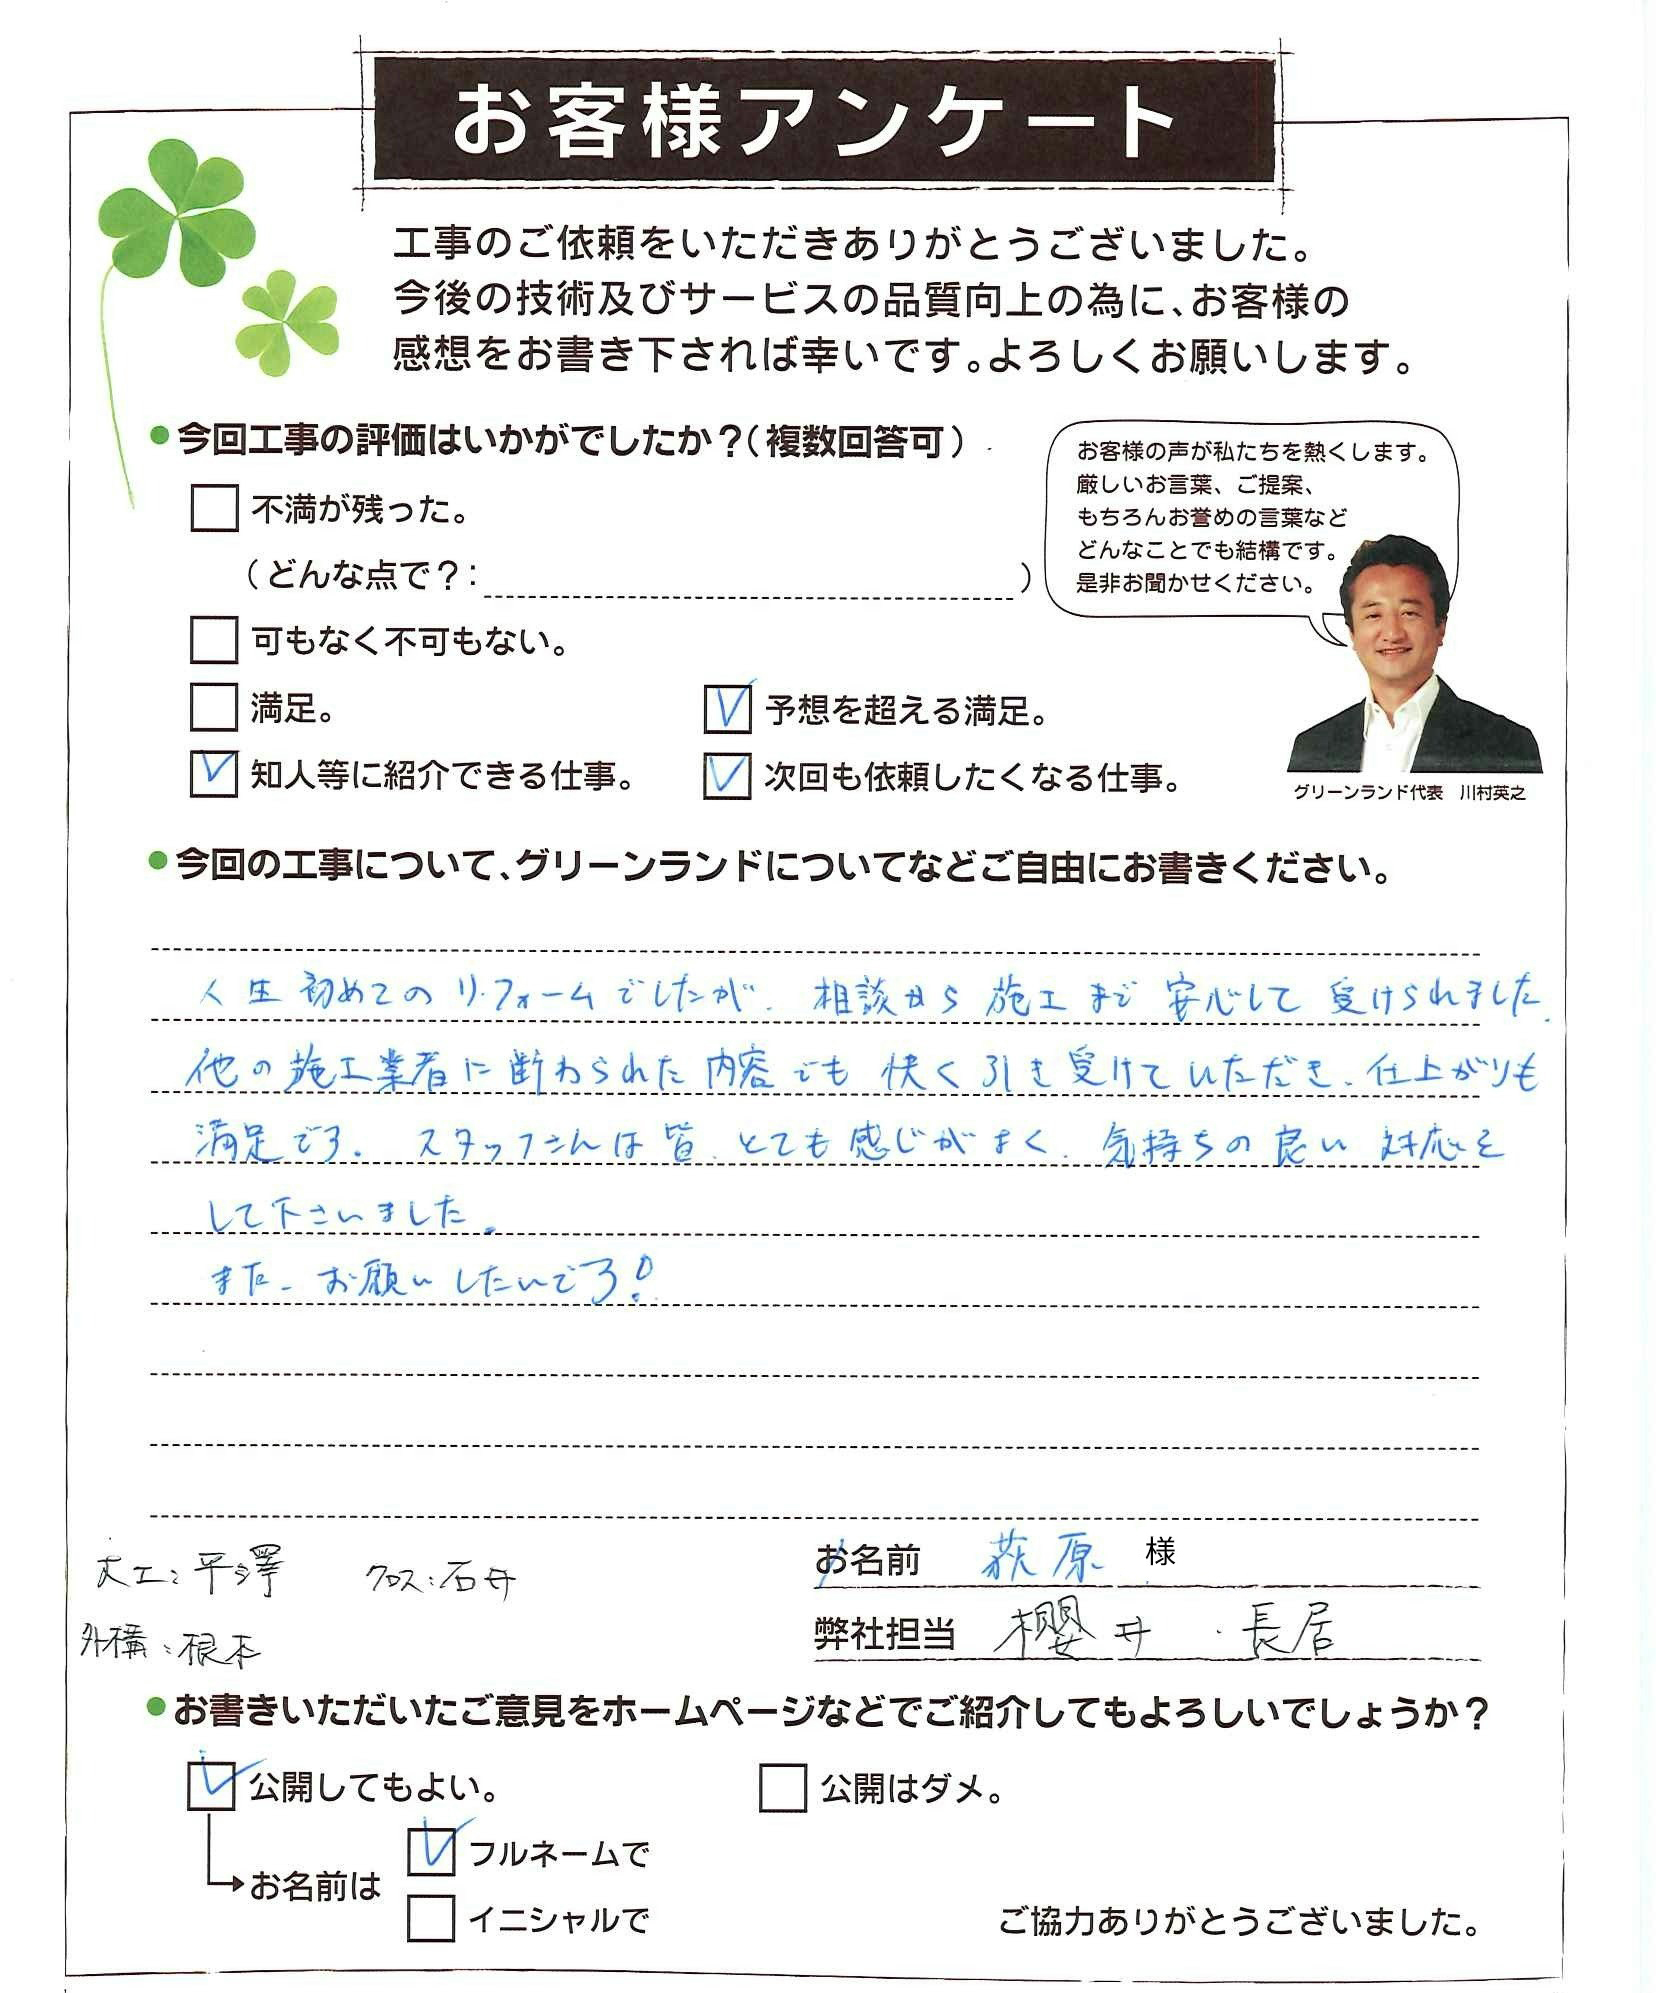 お客様アンケート
工事のご依頼をいただきありがとうございました。
今後の技術及びサービスの品質向上の為に、お客様の
感想をお書き下されば幸いです。よろしくお願いします。
●今回工事の評価はいかがでしたか？（複数回答可）
お客様の声が私たちを熱くします。
厳しいお言葉、ご提案、
もちろんお誉めの言葉など
どんなことでも結構です。
是非お聞かせください。
不満が残った。
（どんな点で？：　）
可もなく不可もない。
満足。
予想を超える満足。
知人等に紹介できる仕事。
次回も依頼したくなる仕事。
グリーンランド代表　川村英之
●今回の工事について、グリーンランドについてなどご自由にお書きください。
人生初めてのリフォームでしたが、相談から施工まで安心して受けられました。
他の施工業者に断わられた内容でも快く引き受けていただき、仕上がりも
満足です。スタッフさんは皆、とても感じがよく、気持ちの良い対応を
して下さいました。
また、お願いしたいです！
大工：平澤　クロス：石井
外構：根本
お名前　荻原　様
弊社担当　櫻井・長居
●お書きいただいたご意見をホームページなどでご紹介してもよろしいでしょうか？
公開してもよい。
公開はダメ。
お名前は
フルネームで
イニシャルで
ご協力ありがとうございました。